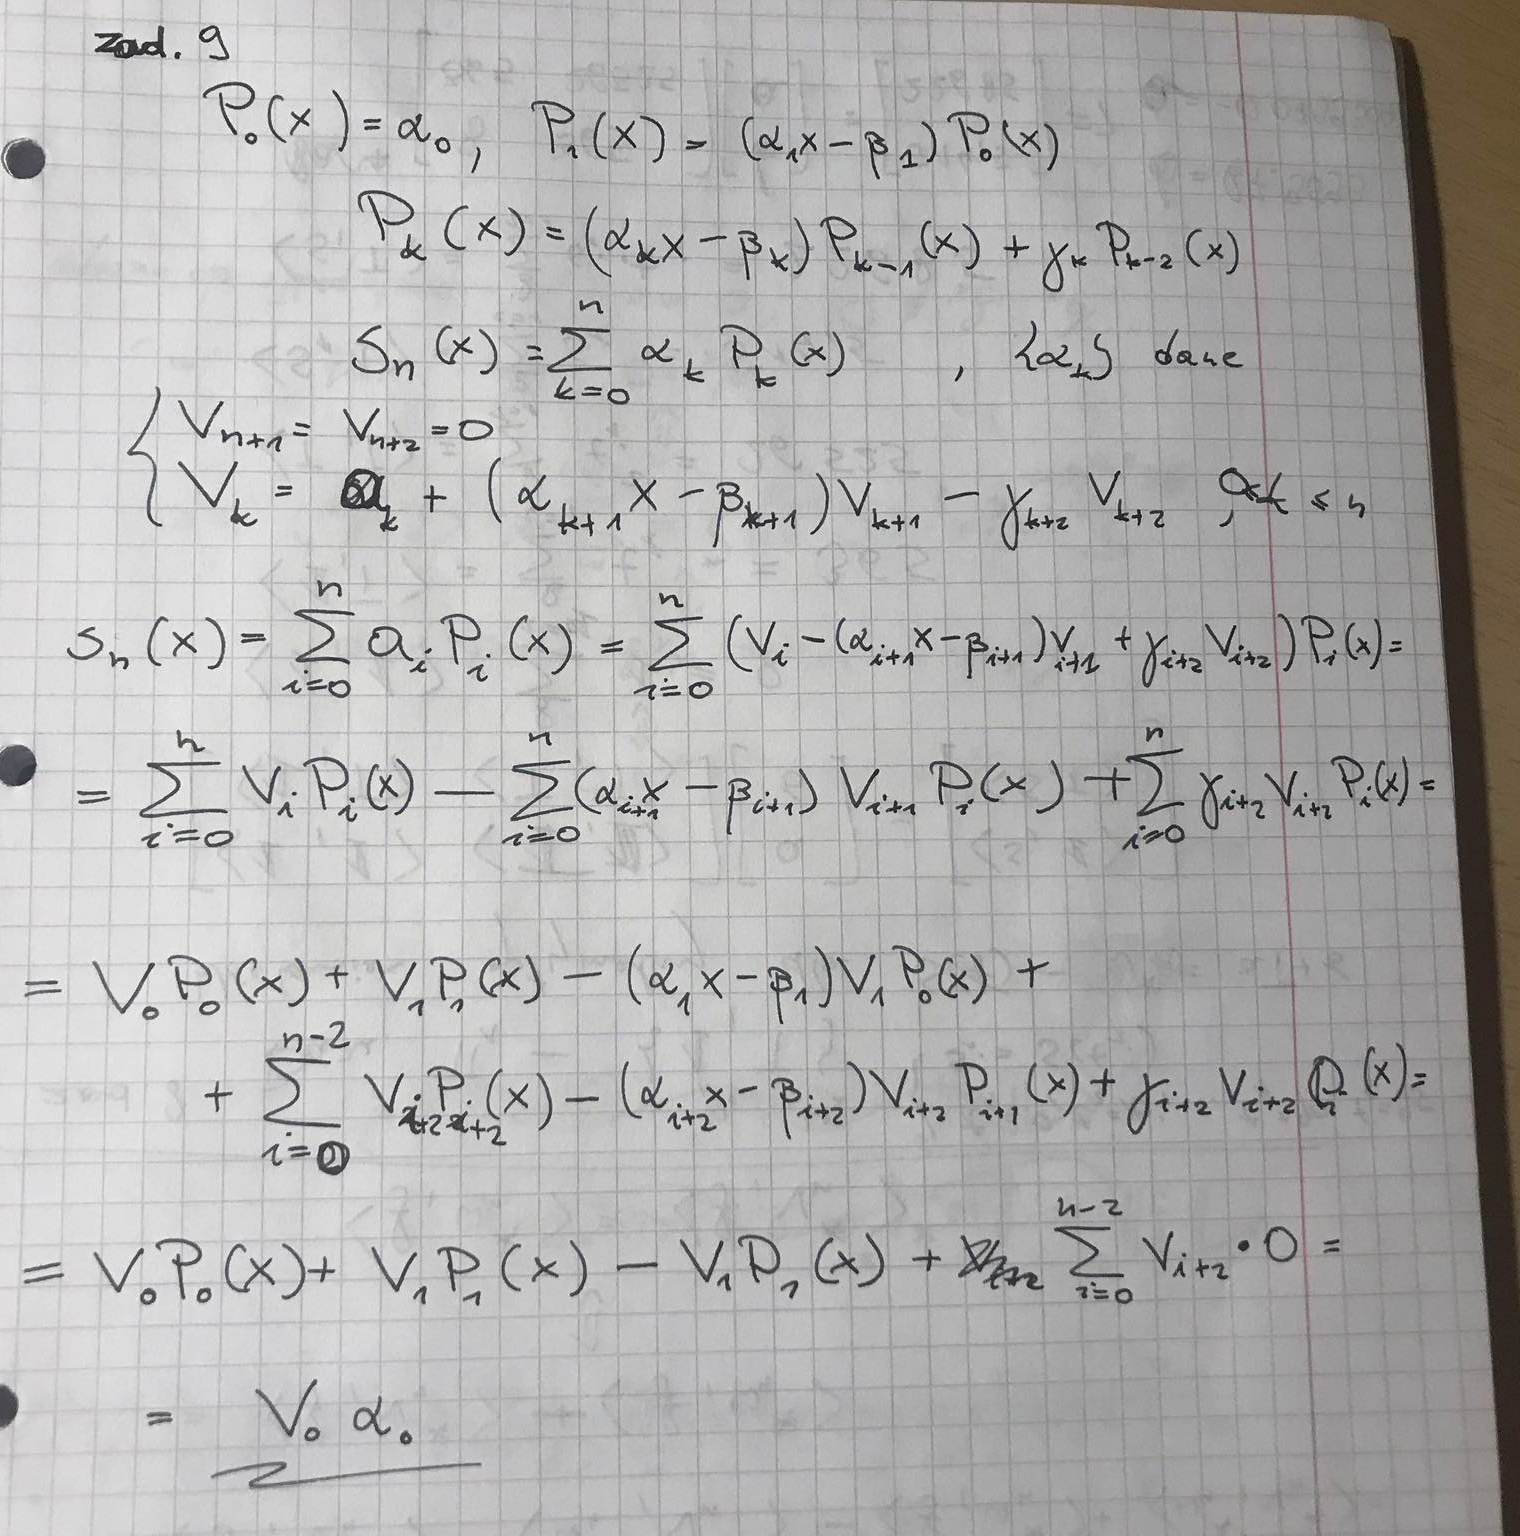 zad. 9
P₀(x) = α₀, P₁(x) = (α₁x − β₁)P₀(x)
Pₖ(x) = (αₖx − βₖ)Pₖ₋₁(x) + γₖ Pₖ₋₂(x)
Sₙ(x) = ∑_{k=0}^{n} αₖ Pₖ(x) , {αₖ} dane
{ Vₙ₊₁ = Vₙ₊₂ = 0
Vₖ = aₖ + (αₖ₊₁x − βₖ₊₁)Vₖ₊₁ − γₖ₊₂ Vₖ₊₂ , ≤ n
Sₙ(x) = ∑_{i=0}^{n} aᵢPᵢ(x) = ∑_{i=0}^{n} (Vᵢ − (αᵢ₊₁x − βᵢ₊₁)Vᵢ₊₁ + γᵢ₊₂Vᵢ₊₂)Pᵢ(x) =
= ∑_{i=0}^{n} VᵢPᵢ(x) − ∑_{i=0}^{n} (αᵢ₊₁x − βᵢ₊₁) Vᵢ₊₁ Pᵢ(x) + ∑_{i=0}^{n} γᵢ₊₂Vᵢ₊₂Pᵢ(x) =
= V₀P₀(x) + V₁P₁(x) − (α₁x − β₁)V₁P₀(x) +
+ ∑_{i=0}^{n-2} Vᵢ₊₂Pᵢ₊₂(x) − (αᵢ₊₂x − βᵢ₊₂)Vᵢ₊₂ Pᵢ₊₁(x) + γᵢ₊₂ Vᵢ₊₂ Pᵢ(x) =
= V₀P₀(x) + V₁P₁(x) − V₁P₁(x) + ∑_{i=0}^{n-2} Vᵢ₊₂ · 0 =
= V₀ α₀